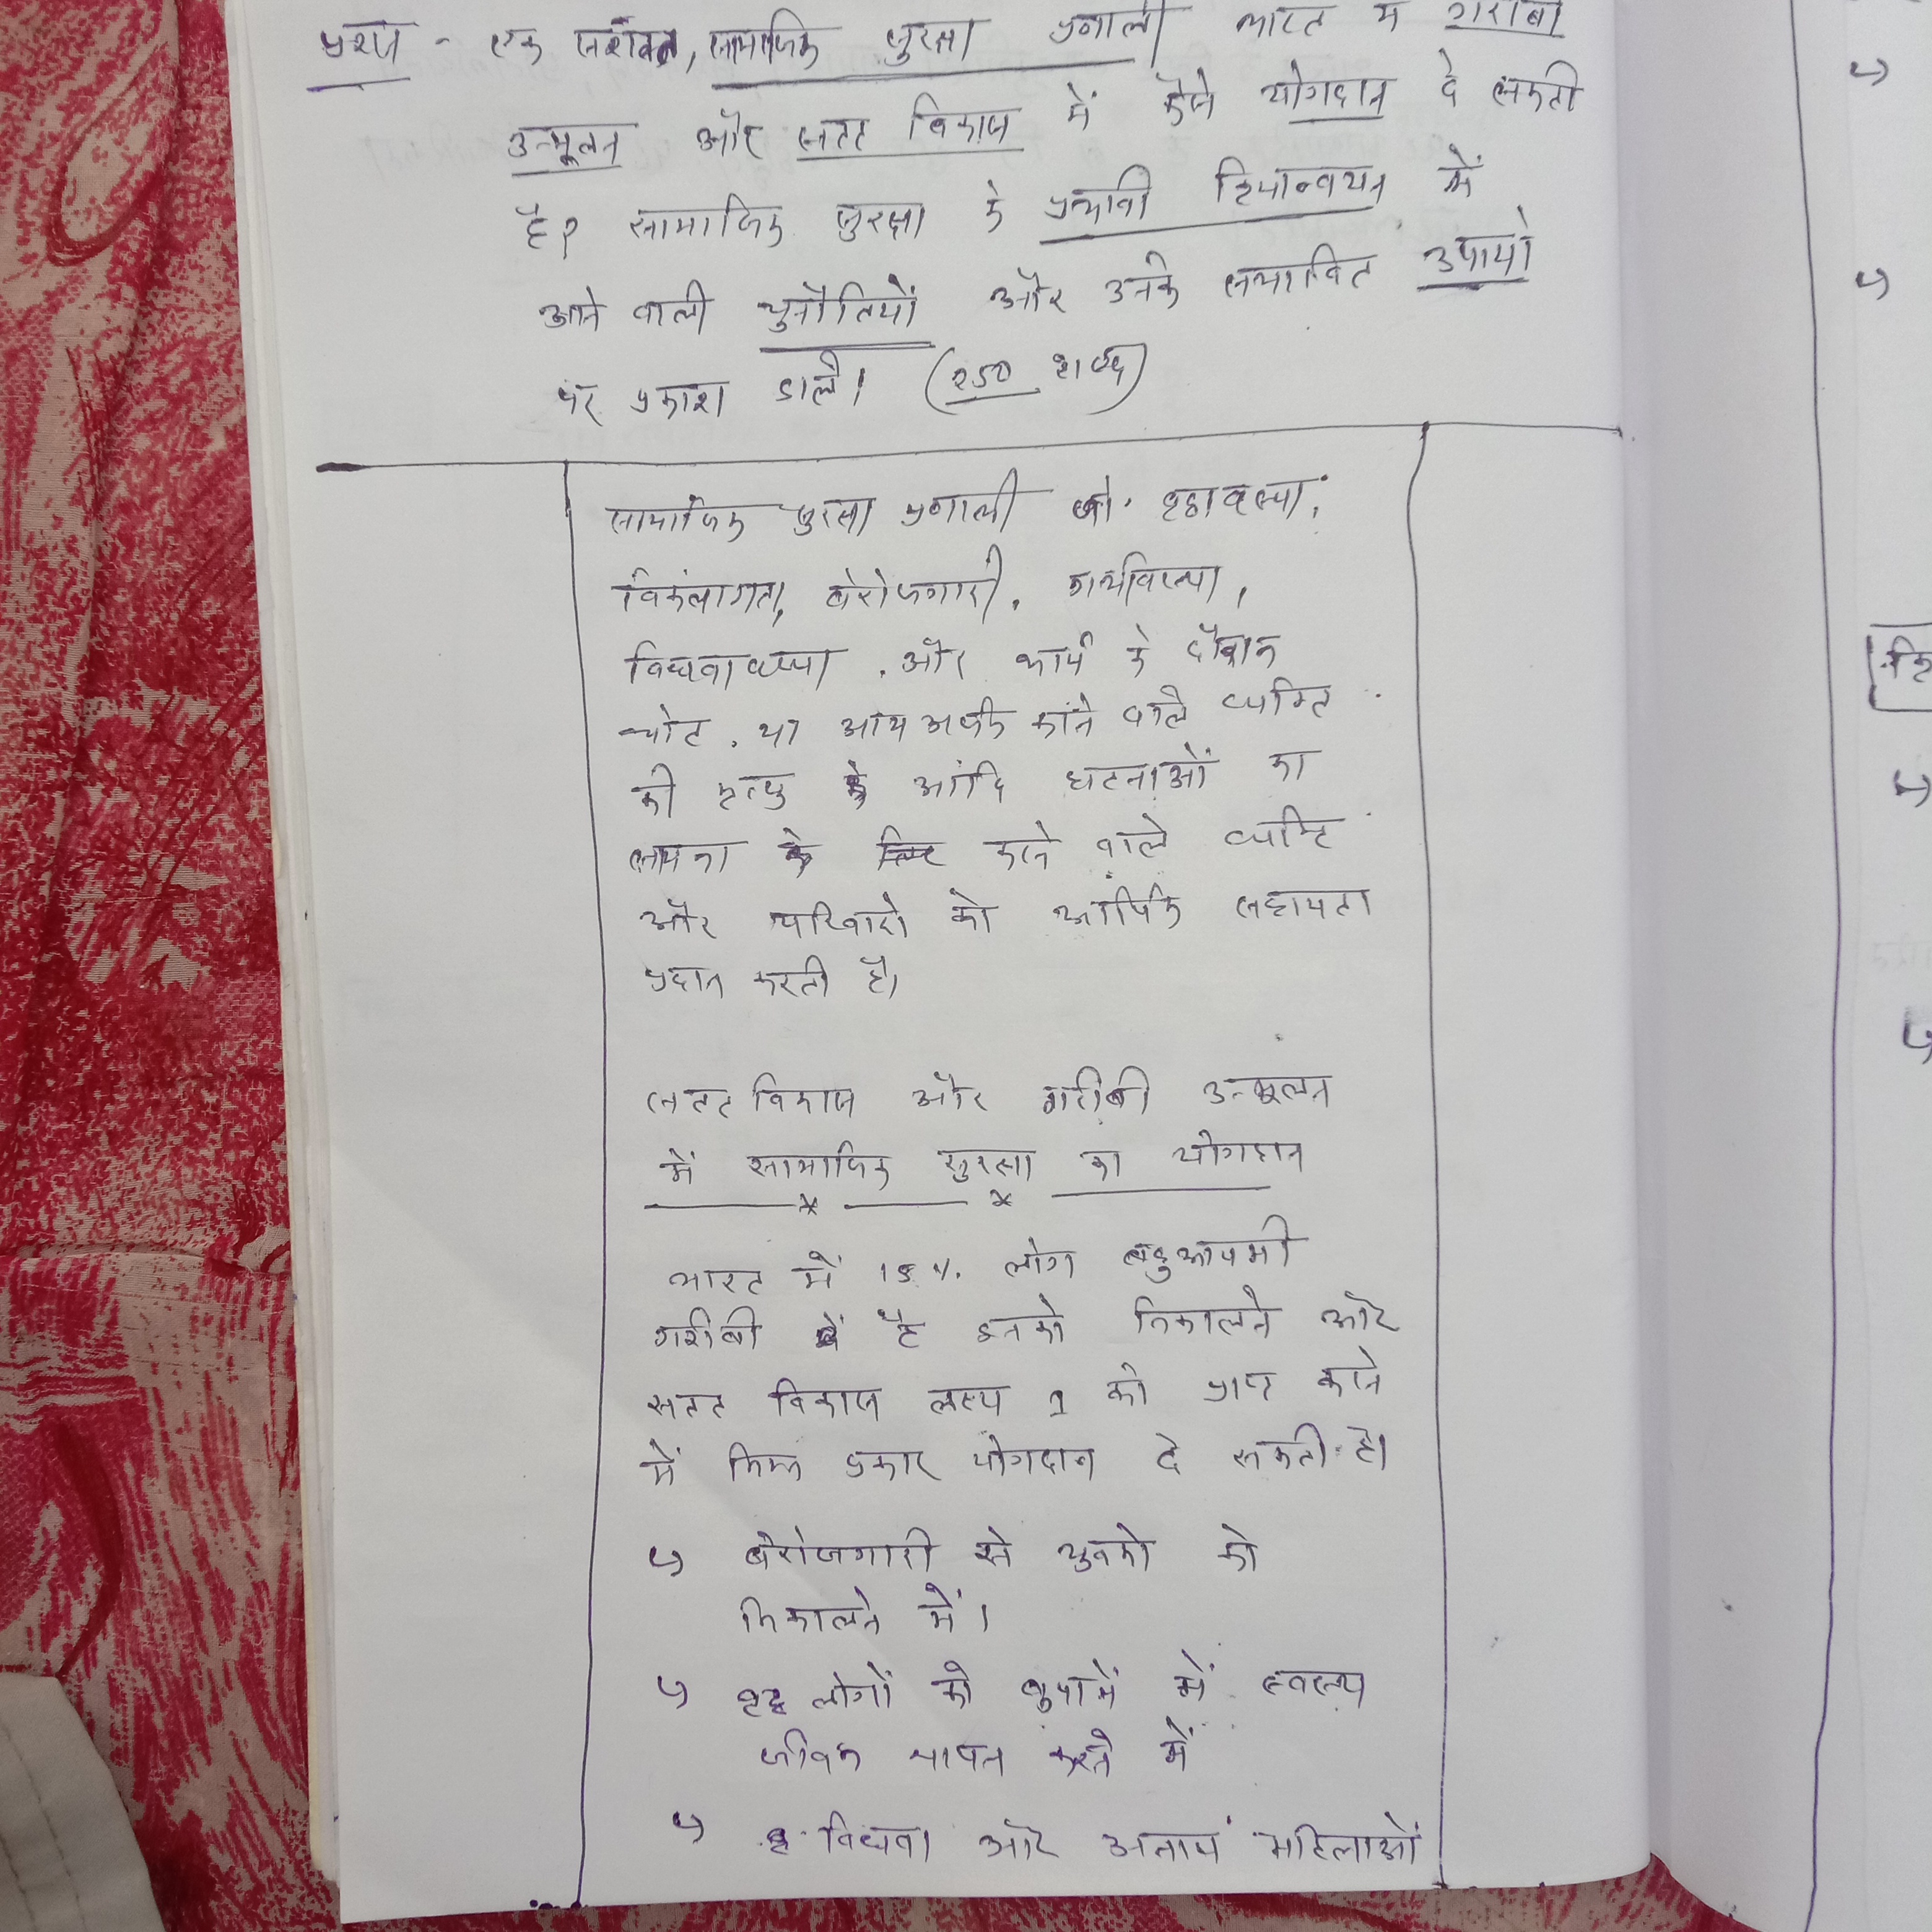 प्रश्न - एक सशक्त, सामाजिक सुरक्षा प्रणाली भारत में गरीबी
उन्मूलन और सतत विकास में कैसे योगदान दे सकती
है? सामाजिक सुरक्षा के प्रभावी क्रियान्वयन में
आने वाली चुनौतियों और उनके सम्भावित उपायो
पर प्रकाश डाले। (250 शब्द)
सामाजिक सुरक्षा प्रणाली को वृद्धावस्था,
विकंलागता, बेरोजगारी, गर्भावस्था,
विधवावस्था, और कार्य के दौरान
चोट, या आय अर्जक करने वाले व्यक्ति
की मृत्यु आदि घटनाओं का
सामना करने वाले व्यक्ति
और परिवारो को आर्थिक सहायता
प्रदान करती है।
सतत विकास और गरीबी उन्मूलन
में सामाजिक सुरक्षा का योगदान
भारत में 15% लोग बहुआयमी
गरीबी में है इनको निकालने और
सतत विकास लक्ष्य 1 को प्राप्त करने
में निम्न प्रकार योगदान दे सकती है।
↪ बेरोजगारी से युवको को
निकालने में।
↪ वृद्ध लोगों को बुढ़ापे में स्वस्थ
जीवन यापन करने में
↪ विधवा और अनाथ महिलाओं